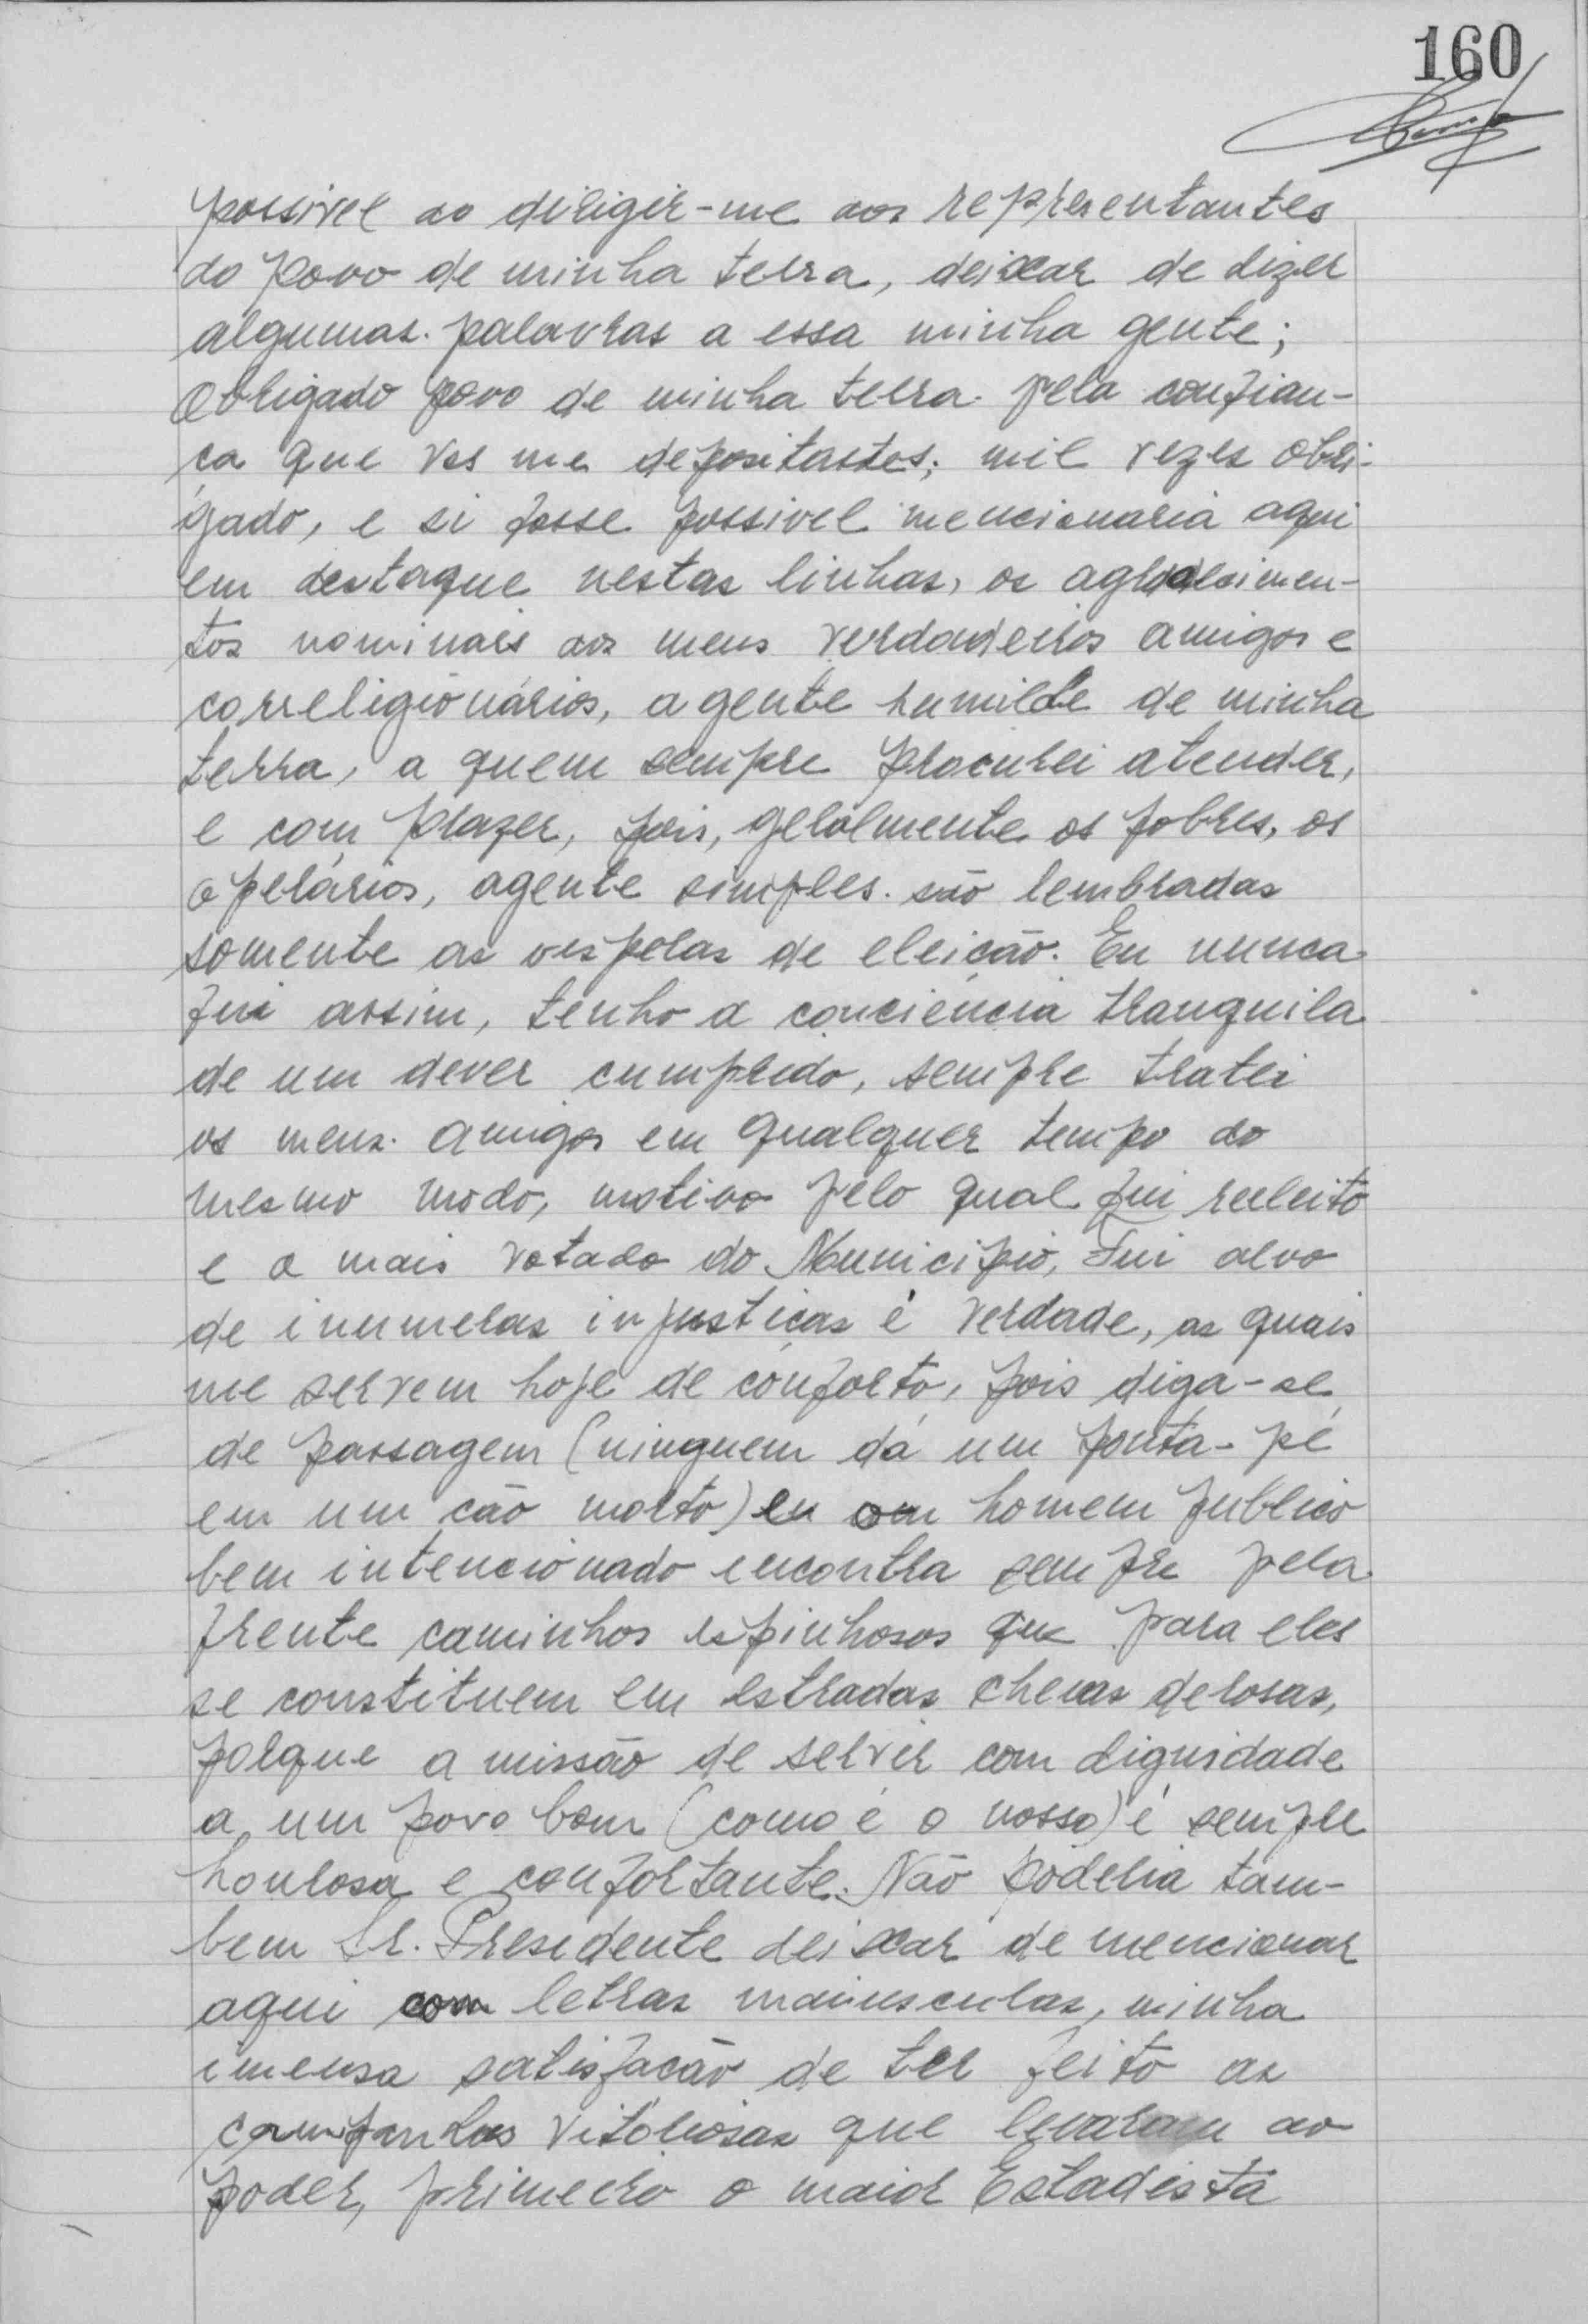 160
possivel ao dirigir-me aos representantes
do povo de minha terra, deixar de dizer
algumas palavras a essa minha gente;
Obrigado povo de minha terra pela confian-
ça que vos me depositastes; mil vezes obri-
gado, e si fosse possivel mencionaria aqui
em destaque nestas linhas, os agradecimen-
tos nominais aos meus verdadeiros amigos e
correligionários, a gente humilde de minha
terra, a quem sempre procurei atender,
e com prazer, pois, geralmente os pobres, os
operários, agente simples são lembradas
somente as vesperas de eleição. Eu nunca
fui assim, tenho a conciencia tranquila
de um dever cumprido, sempre tratei
os meus amigos em qualquer tempo do
mesmo modo, motivo pelo qual fui releito
e o mais votado do Municipio, Fui alvo
de inumeras injustiças é verdade, as quais
me servem hoje de conforto, pois diga-se
de passagem (ninguem dá um ponta-pé
em um cão morto) eu homem publico
bem intencionado encontra sempre pela
frente caminhos espinhosos que para eles
se constituem em estradas cheias derosas,
porque a missão de servir com dignidade
a um povo bom (como é o nosso) é sempre
honrosa e confortante. Não poderia tam-
bem Sr. Presidente deixar de mencionar
aqui com letras maiusculas, minha
imensa satisfação de ter feito as
campanhas vitoriosas que levaram ao
poder, primeiro o maior Estadista